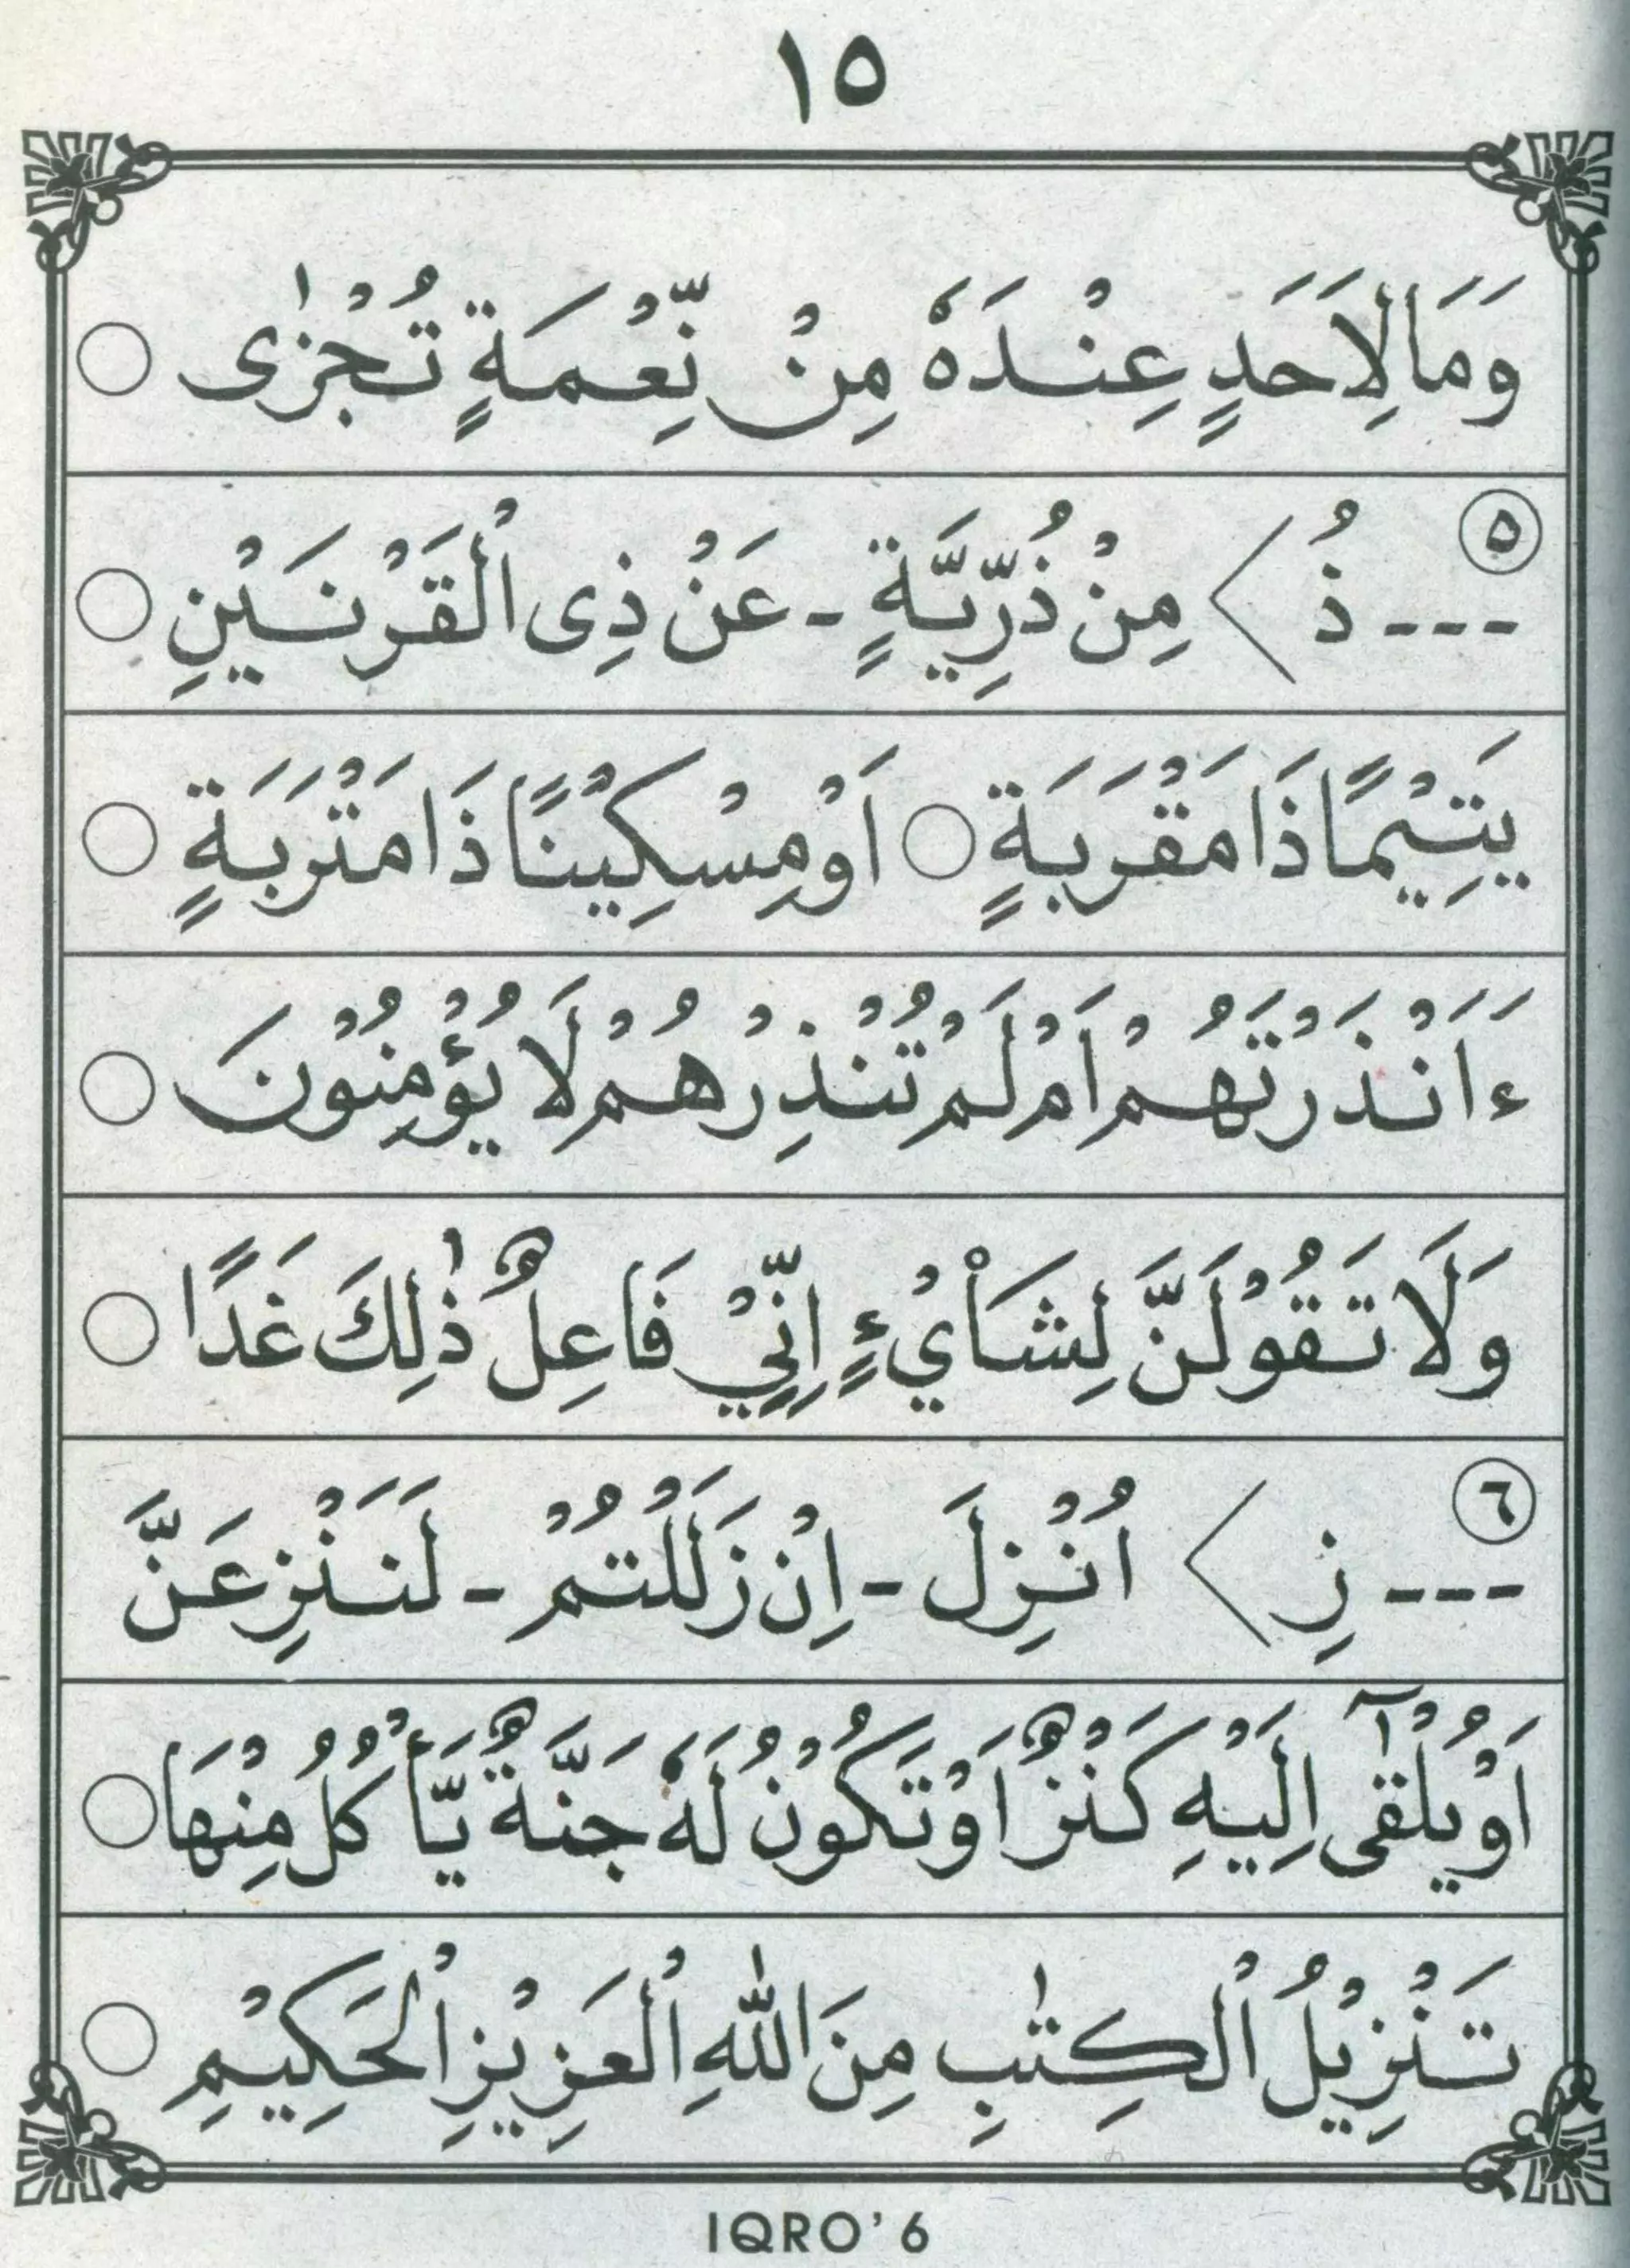 ١٥
وَمَا لِاَحَدٍ عِنْدَهٗ مِنْ نِّعْمَةٍ تُجْزٰى ○
٥
--- ذُ > مِنْ ذُرِّيَّةٍ - عَنْ ذِى الْقَرْنَيْنِ ○
يَتِيْمًا ذَا مَقْرَبَةٍ ○ اَوْ مِسْكِيْنًا ذَا مَتْرَبَةٍ ○
ءَاَنْذَرْتَهُمْ اَمْ لَمْ تُنْذِرْهُمْ لَا يُؤْمِنُوْنَ ○
وَلَا تَقُوْلَنَّ لِشَاْيْءٍ اِنِّيْ فَاعِلٌ ذٰلِكَ غَدًا ○
٦
--- نِ > اُنْزِلَ - اِنْ زَلَلْتُمْ - لَنَنْزِعَنَّ
اَوْ يُلْقٰٓى اِلَيْهِ كَنْزٌ اَوْ تَكُوْنُ لَهٗ جَنَّةٌ يَّأْكُلُ مِنْهَا ○
تَنْزِيْلُ الْكِتٰبِ مِنَ اللّٰهِ الْعَزِيْزِ الْحَكِيْمِ ○
IQRO' 6